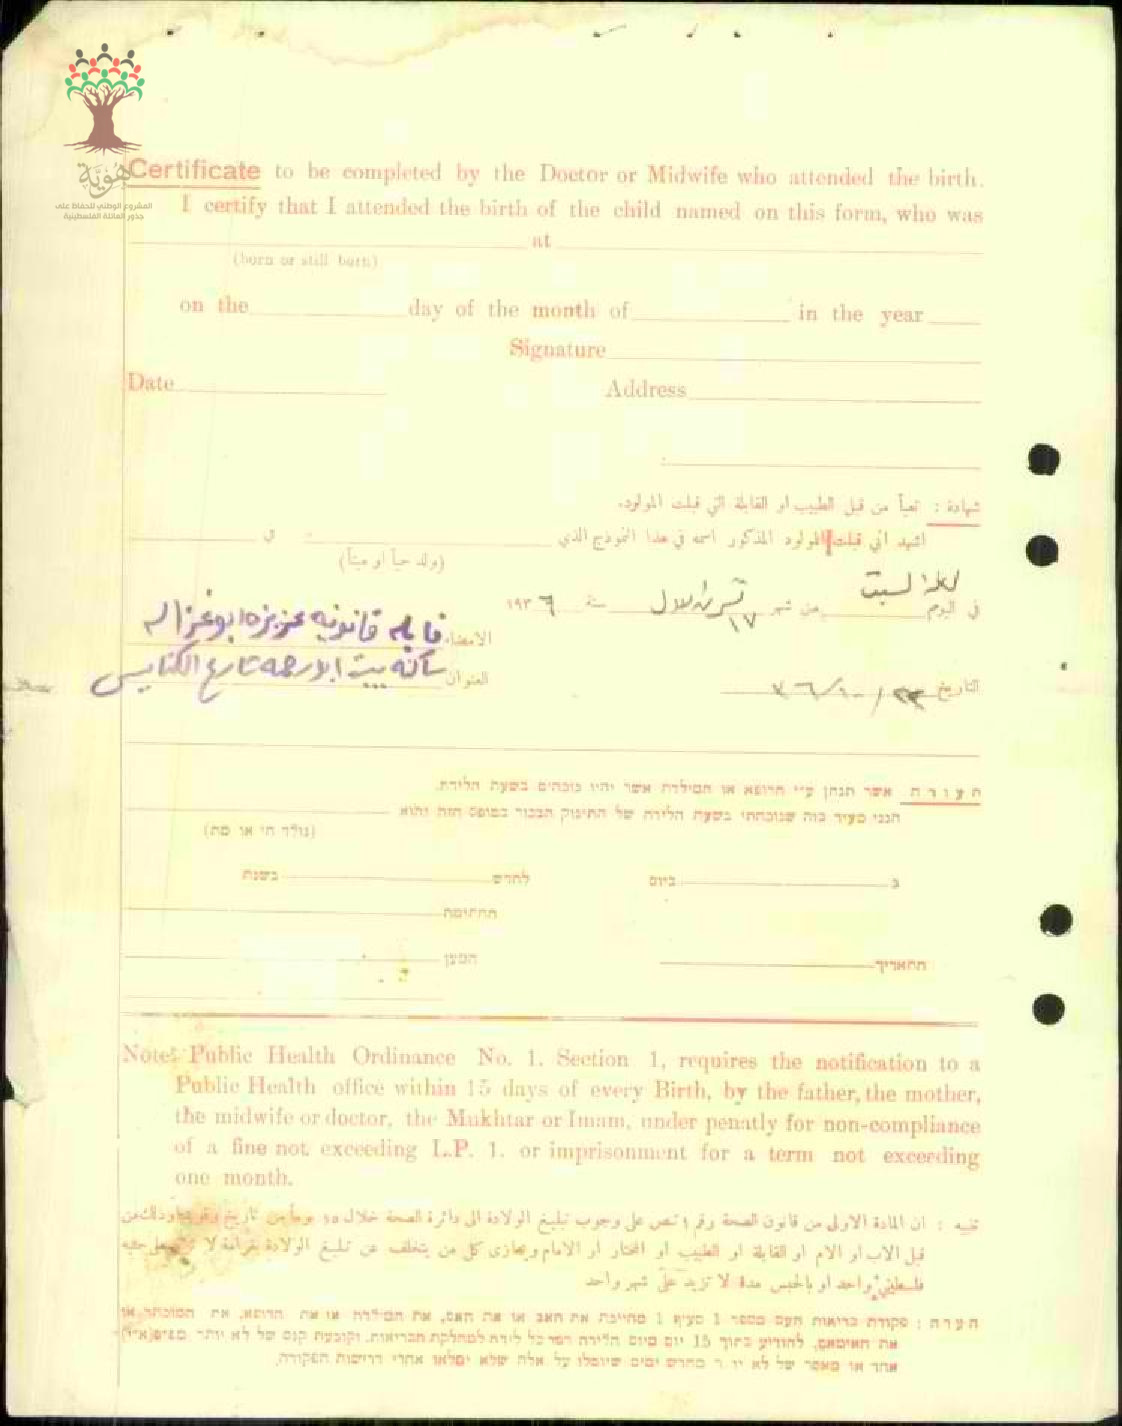 هُوِيَّة
المشروع الوطني للحفاظ على
جذور العائلة الفلسطينية
Certificate to be completed by the Doctor or Midwife who attended the birth.
I certify that I attended the birth of the child named on this form, who was
at
(born or still born)
on the day of the month of in the year
Signature
Date Address
شهادة : تعبأ من قبل الطبيب او القابلة التي قبلت المولود.
اشهد اني قبلت المولود المذكور اسمه في هذا النموذج الذي في
(ولد حياً او ميتاً)
في اليوم السبت من شهر ١٧ سنة ١٩٣٦
الامضاء قابله قانونيه عزيزه ابو غزاله
العنوان ساكنه بيت ابو رحمه شارع الكنايس
التاريخ ٢٣/١٠/٣٦
תעודה אשר תנתן ע״י הרופא או המילדת אשר יהיו נוכחים בשעת הלידה.
הנני מעיד בזה שנוכחתי בשעת הלידה של התינוק הנזכר בטופס הזה והוא
(נולד חי או מת)
ב ביום לחדש בשנת
החתימה
התאריך המען
Note: Public Health Ordinance No. 1. Section 1, requires the notification to a
Public Health office within 15 days of every Birth, by the father, the mother,
the midwife or doctor, the Mukhtar or Imam, under penatly for non-compliance
of a fine not exceeding L.P. 1. or imprisonment for a term not exceeding
one month.
تنبيه : ان المادة الاولى من قانون الصحة رقم ١ تنص على وجوب تبليغ الولادة الى دائرة الصحة خلال ١٥ يوماً من تاريخ وذلك من
قبل الاب او الام او القابلة او الطبيب او المختار او الامام ويجازى كل من يتخلف عن تبليغ الولادة بغرامة لا جنيه
فلسطيني واحد او بالحبس مدة لا تزيد على شهر واحد
הערה : פקודת בריאות העם מספר 1 סעיף 1 מחייבת את האב או את האם, את המילדת או את הרופא, את המוכתר או
את האימאם, להודיע בתוך 15 יום מיום הלידה דבר כל לידה למחלקת הבריאות. וקובעת קנס של לא יותר
אחד או מאסר של לא יותר מחדש ימים שיוטלו על אלה שלא ימלאו אחרי דרישות הפקודה.